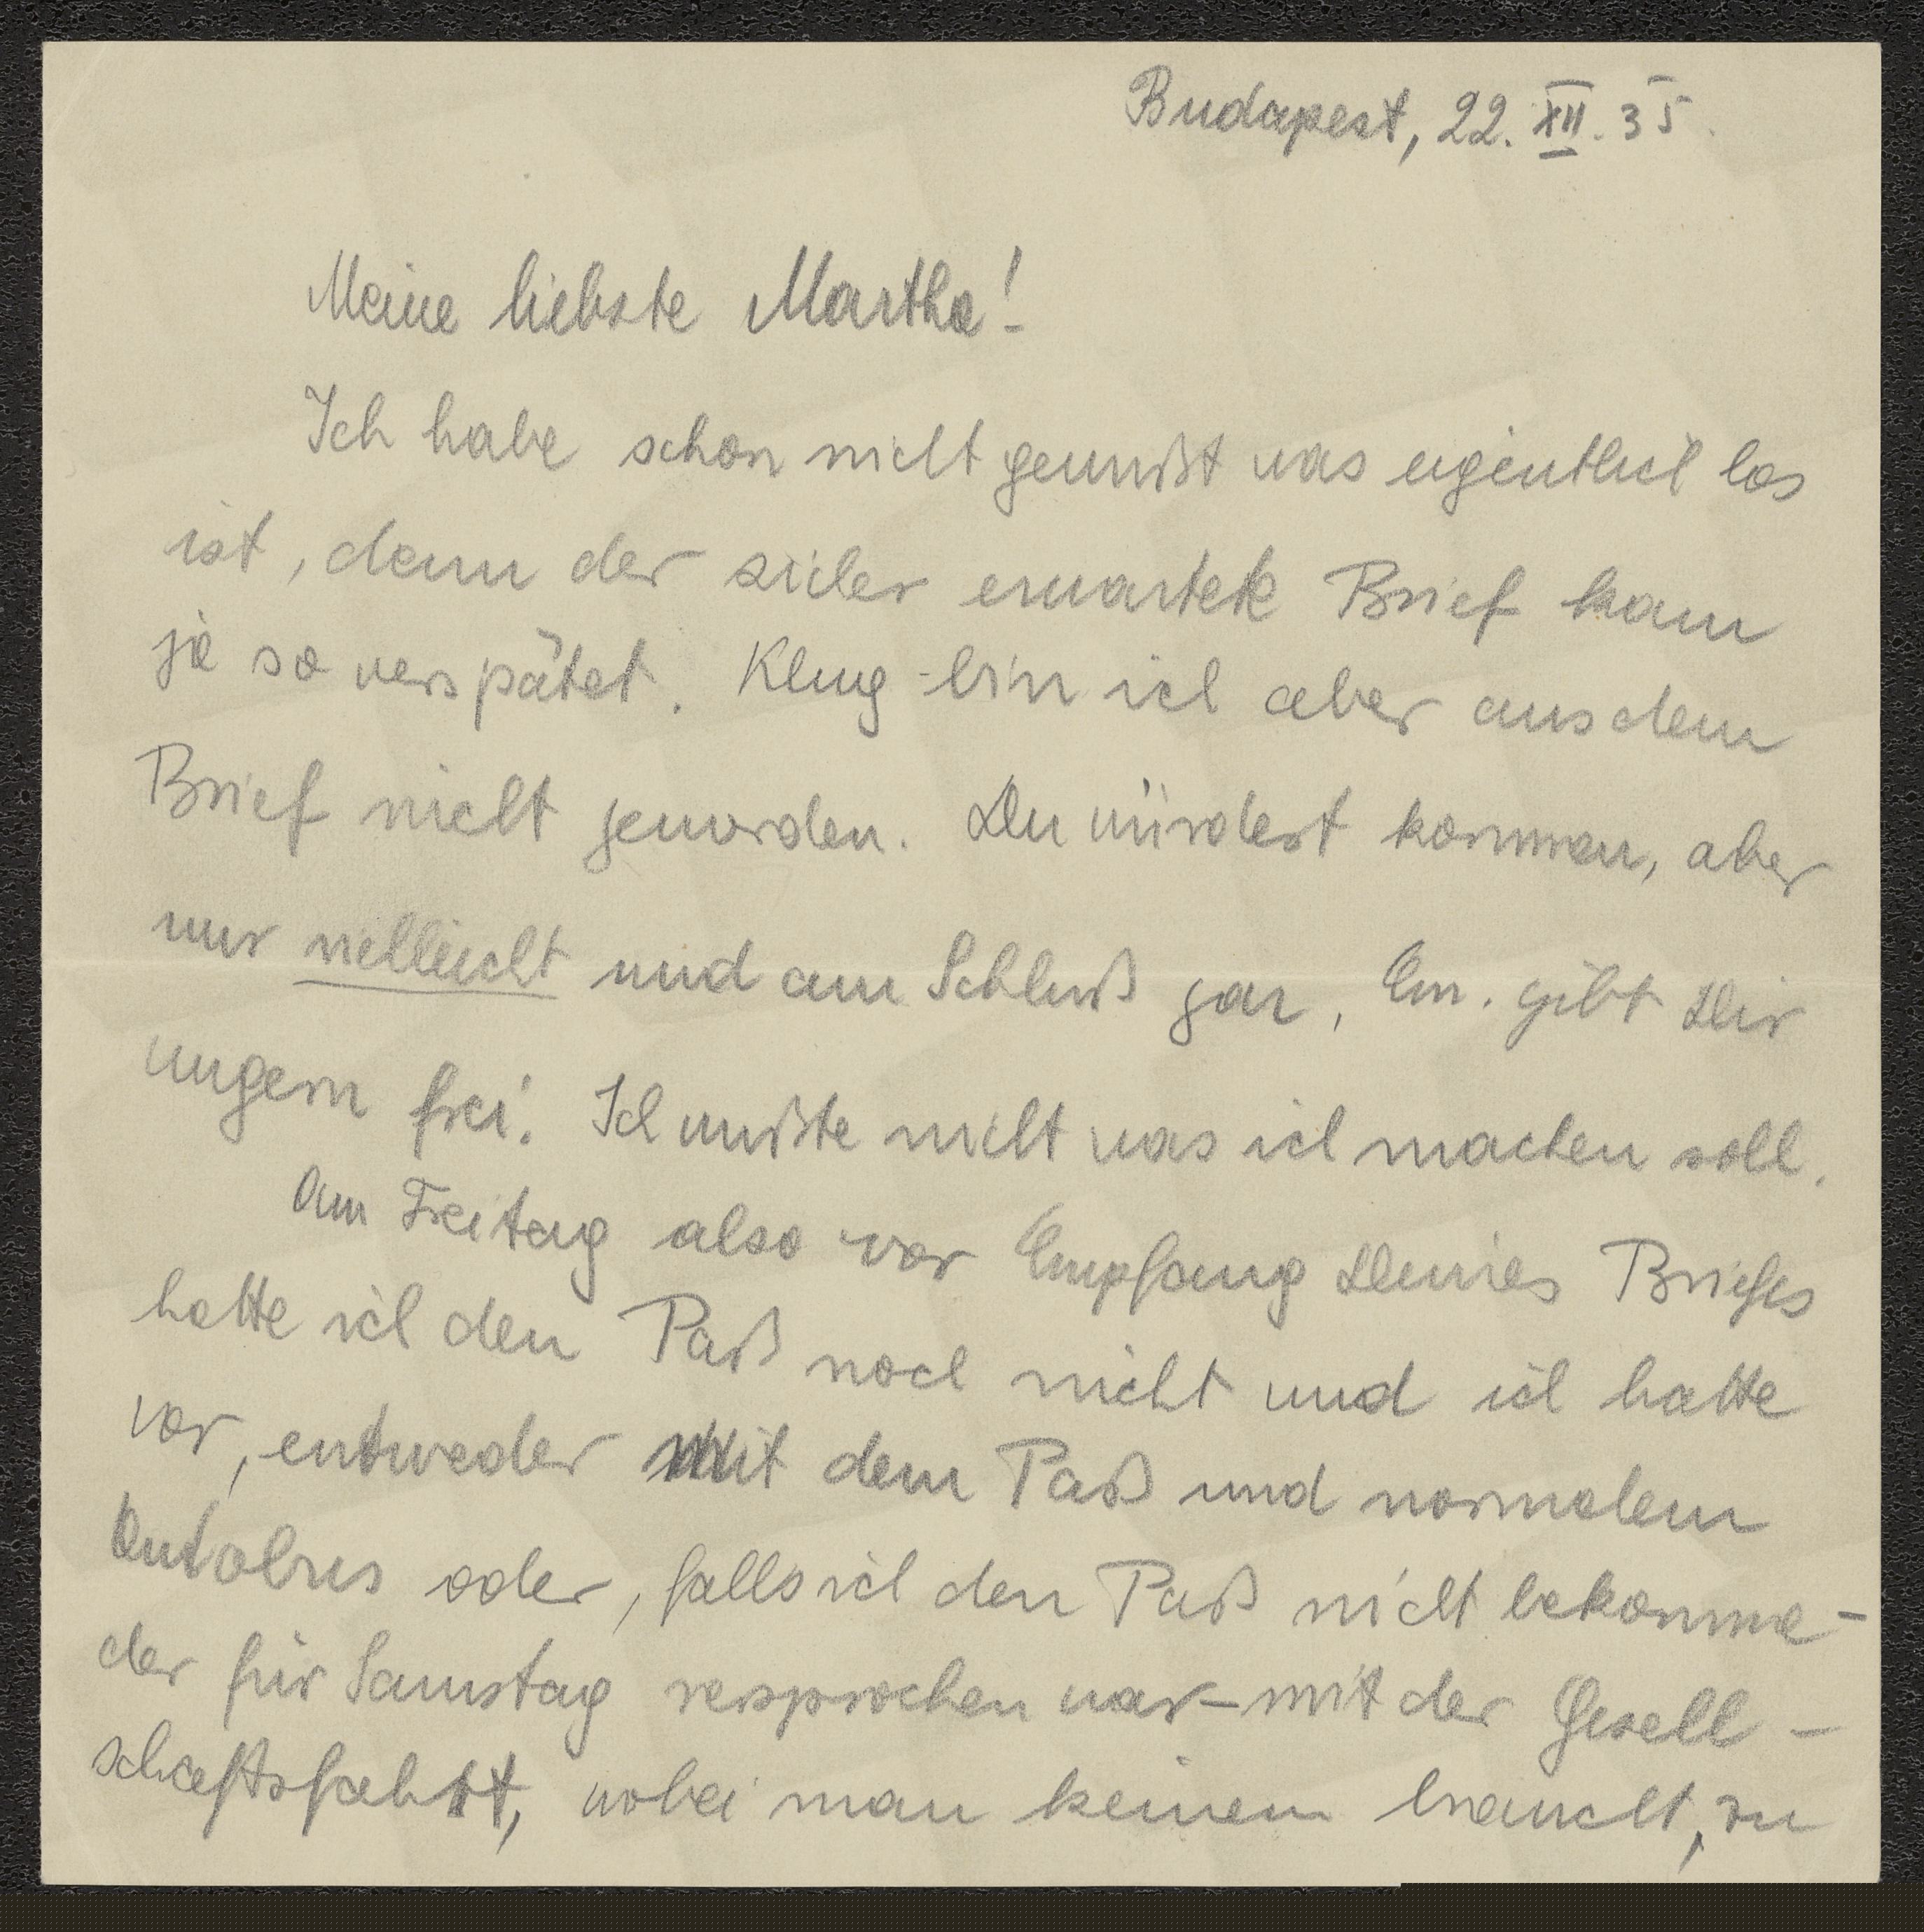 Budapest, 22. XII. 35.
Meine liebste Martha!
Ich habe schon nicht gewußt was eigentlich los
ist, denn der sicher erwartete Brief kam
ja so verspätet. Klug bin ich aber aus dem
Brief nicht geworden. Du würdest kommen, aber
nur vielleicht und am Schluß gar, Em. gibt Dir
ungern frei. Ich wußte nicht was ich machen soll.
Am Freitag also vor Empfang Deines Briefes
hatte ich den Paß noch nicht und ich hatte
vor, entweder mit dem Paß und normalem
Autobus oder, falls ich den Paß nicht bekomme -
der für Samstag versprochen war - mit der Gesell-
schaftsfahrt, wobei man keinen braucht, zu